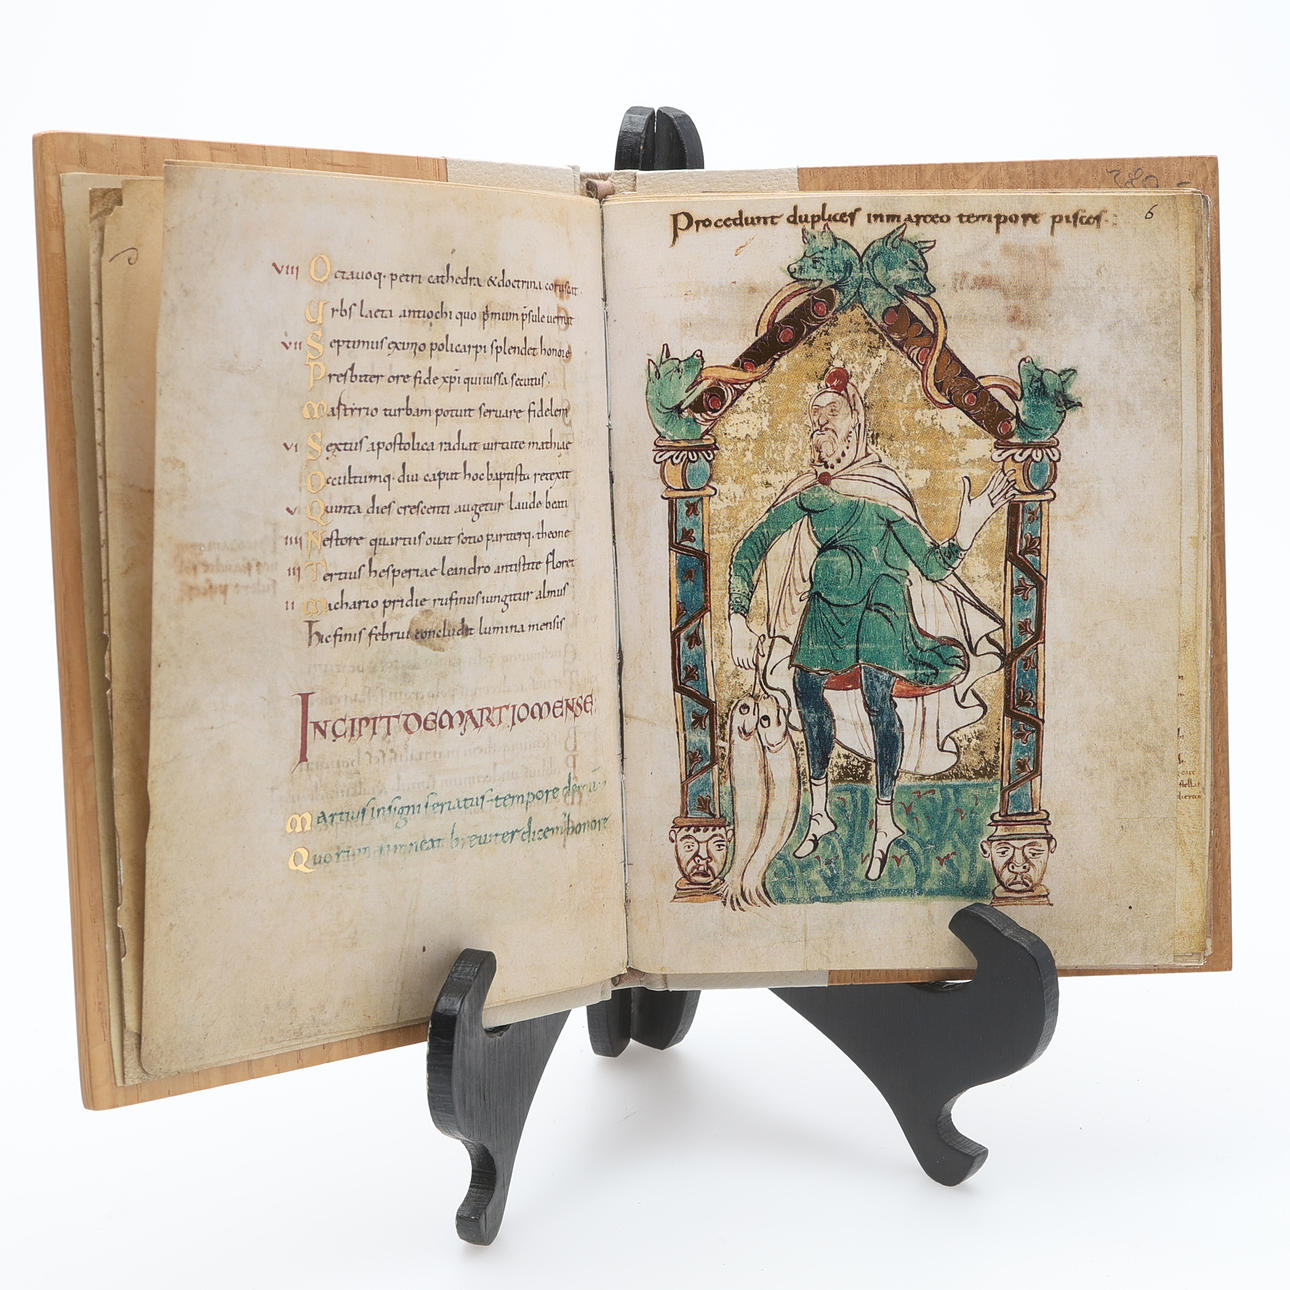 VIII Octauoq. petri cathedra & doctrina coruscat
Urbs laeta antiochi quo pmum psule
VII Septimus eximio policarpi splendet honore
Presbiter ore fide xpi qui iussa secutus.
Martirio turbam potuit seruare fidelem
VI Sextus apostolica radiat uirtute mathias
Occultumq. diu caput hoc baptista retexit
V Quinta dies crescenti augetur laude beati
IIII Nestore quartus ouat sotio theone
III Tertius hesperiae leandro antistite floret
II Machario pridie rufinus iungitur almus
Hic finis februi concludit lumina mensis
INCIPIT DE MARTIO MENSE
Martius insigni seriatus tempore
Quorum breuiter dicem honore
Procedunt duplices in marteo tempore pisces:
6